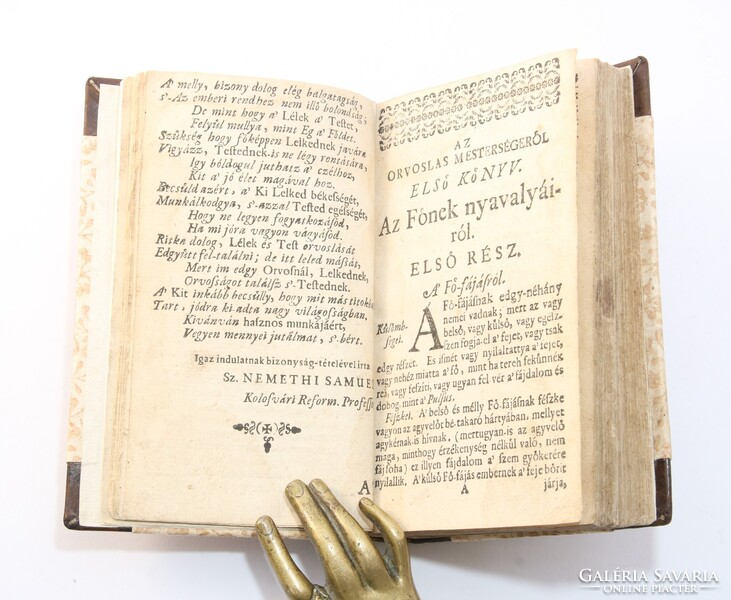 A' melly, bizony dolog elég balgatagság,
s'-Az emberi rendhez nem illő bolondság;
De mint hogy a' Lélek a' Testet,
Felyül mullya, mint Eg a' Földet.
Szükség hogy főképpen Lelkednek javára
Vigyázz, Testednek-is ne légy rontására,
Igy bóldogul juthatz a' czélhoz,
Kit a' jó élet magával hoz.
Becsüld azért, a' Ki Lelked békeségét,
Munkálkodgya, s'-azzal Tested egésségét,
Hogy ne legyen fogyatkozásod,
Ha mi jóra vagyon vágyásod.
Ritka dolog, Lélek és Test orvoslását
Edgyütt fel-találni; de itt leled máßát;
Mert im edgy Orvosnál, Lelkednek,
Orvosságot találsz s'-Testednek.
A' Kit inkább becsülly, hogy mit más titokban
Tart, jódra ki-adta nagy világosságban.
Kivánván hasznos munkájáért,
Vegyen mennyei jutálmat, s'-bért.
Igaz indulatnak bizonyság-tételével irta
Sz. NEMETHI SAMUEL
Kolosvári Reform. Profess
A
AZ
ORVOSLAS MESTERSÉGERŐL
ELSŐ KőNYV.
Az Főnek nyavalyái-
ról.
ELSŐ RÉSZ.
A' Fő-fájásról.
Külömb-
ségei.
A Fő-fájásnak edgy-néhány
nemei vadnak; mert az vagy
belső, vagy külső, vagy egész-
szen fogja-el a' fejet, vagy tsak
edgy részét. Es ismét vagy nyilaltattya a' fejet,
vagy nehéz miatta a' fő, mint ha tereh fekünnék
rea, vagy feszíti, vagy ugyan fel vér a' fájdalom és
dobog, mint a' Pulsus.
Fészkei. A' belső és mélly Fő-fájásnak fészke
vagyon az agyvelőt bé-takaró hártyában, mellyet
agykérnak-is hívnak. (mertugyan-is az agyvelő
maga, minthogy érzékenység nélkül való, nem
fájhat) ez illyen fájdalom a' szem gyökerére
nyilallik. A' külső Fő-fájás embernek a' feje bőrit
A
járja,
GALÉRIA SAVARIA
ONLINE PIACTÉR